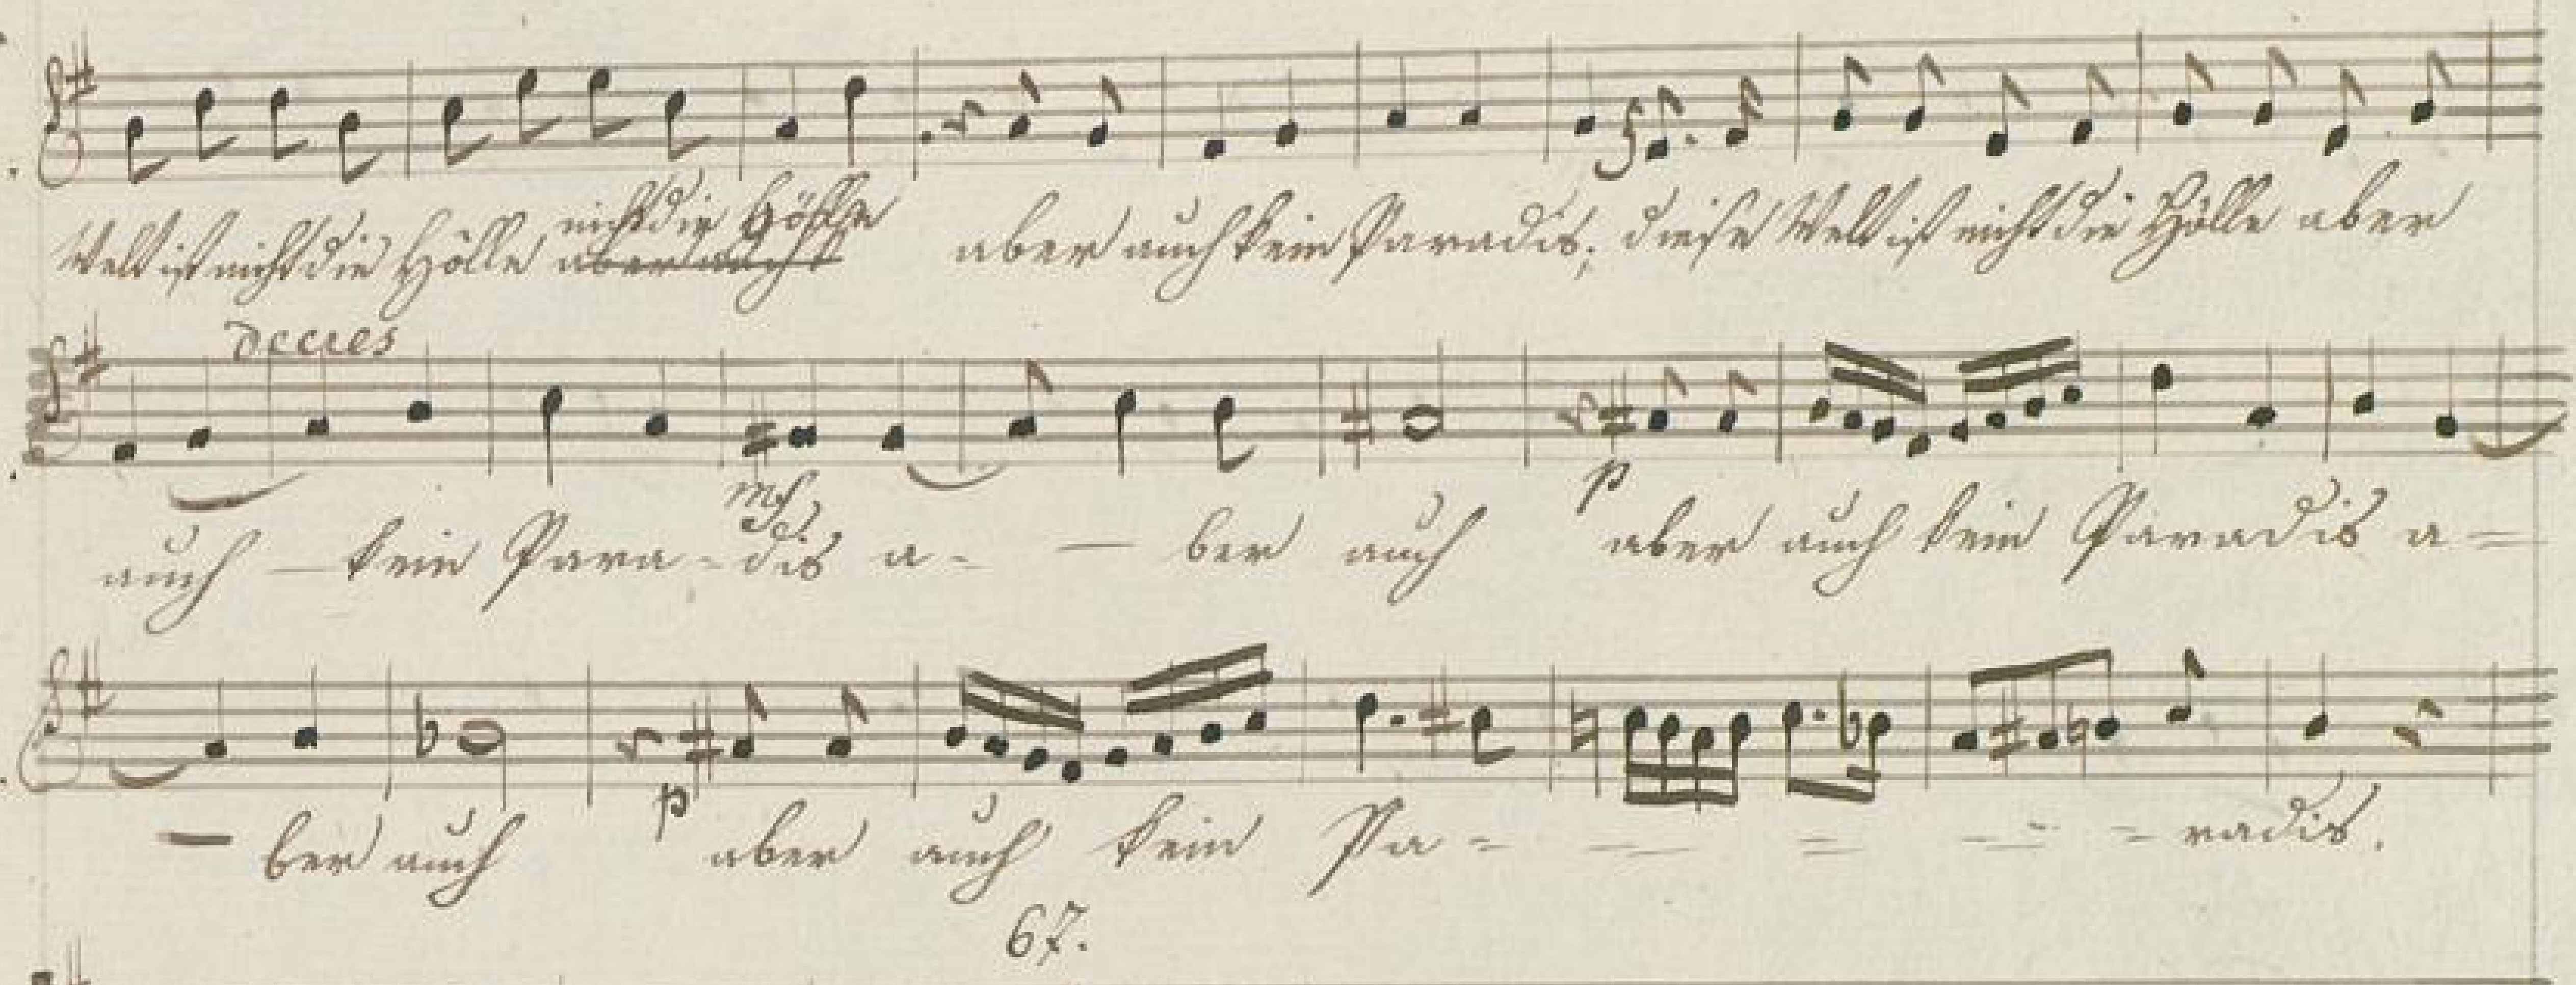 nicht die Hölle
Welt ist nicht die Hölle aber auch aber auch kein Paradis; diese Welt ist nicht die Hölle aber
decres
mf
p
auch – kein Para- dis a- – ber auch aber auch kein Paradis a-
p
– ber auch aber auch kein Pa- - - - - radis.
67.